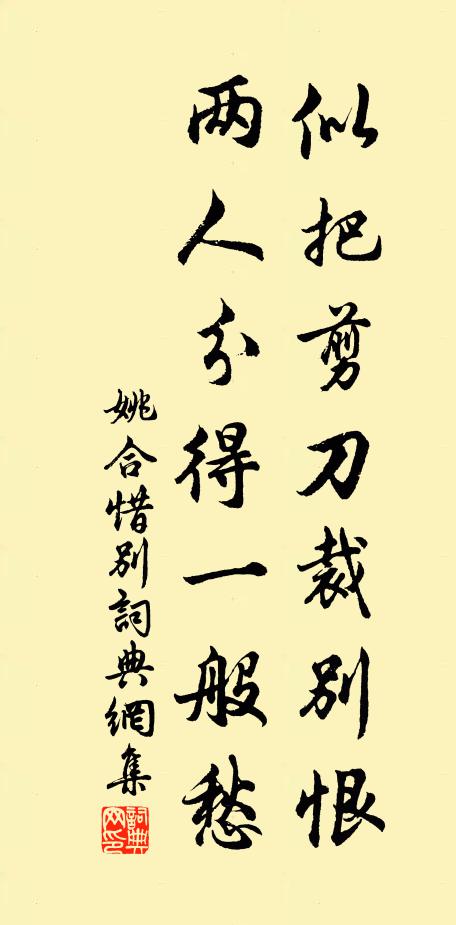 似把剪刀裁别恨
两人分得一般愁
姚合惜别詞典網集
詞典网印